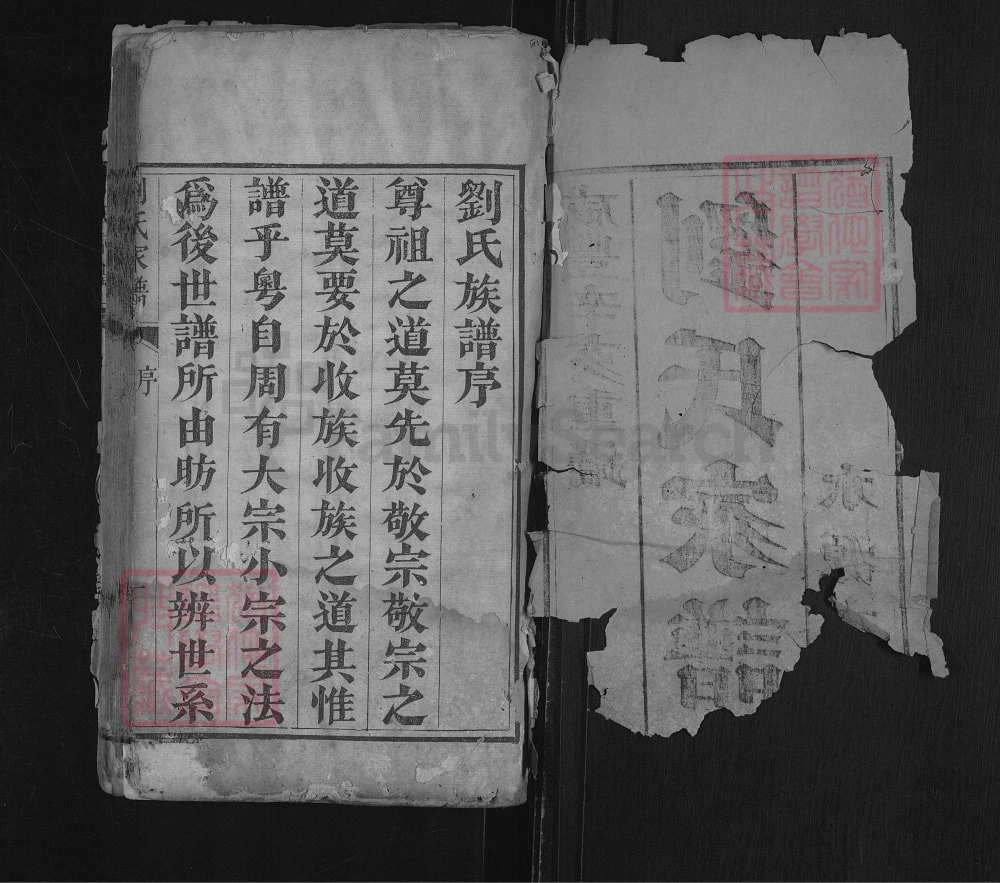 劉氏家譜
劉氏族譜序
尊祖之道莫先於敬宗敬宗之
道莫要於收族收族之道其惟
譜乎粵自周有大宗小宗之法
爲後世譜所由昉所以辨世系
劉氏家譜
序
FamilySearch